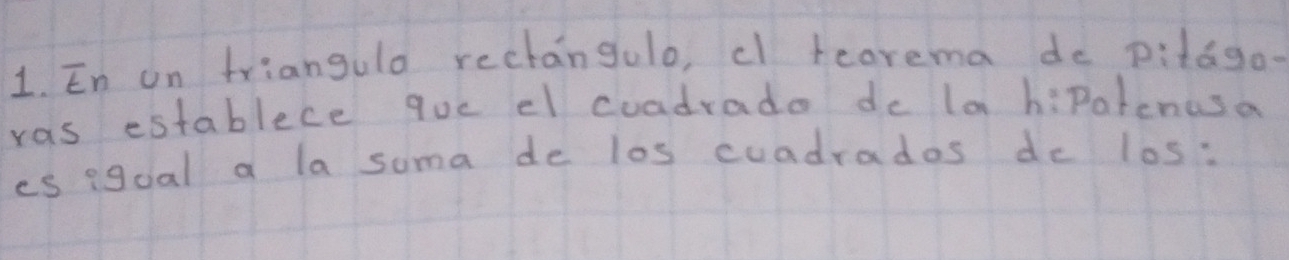 1. En un triangulo rectángulo, el teorema de Pitágo-
ras establece que el cuadrado de la hipotenusa
es igual a la suma de los cuadrados de los: